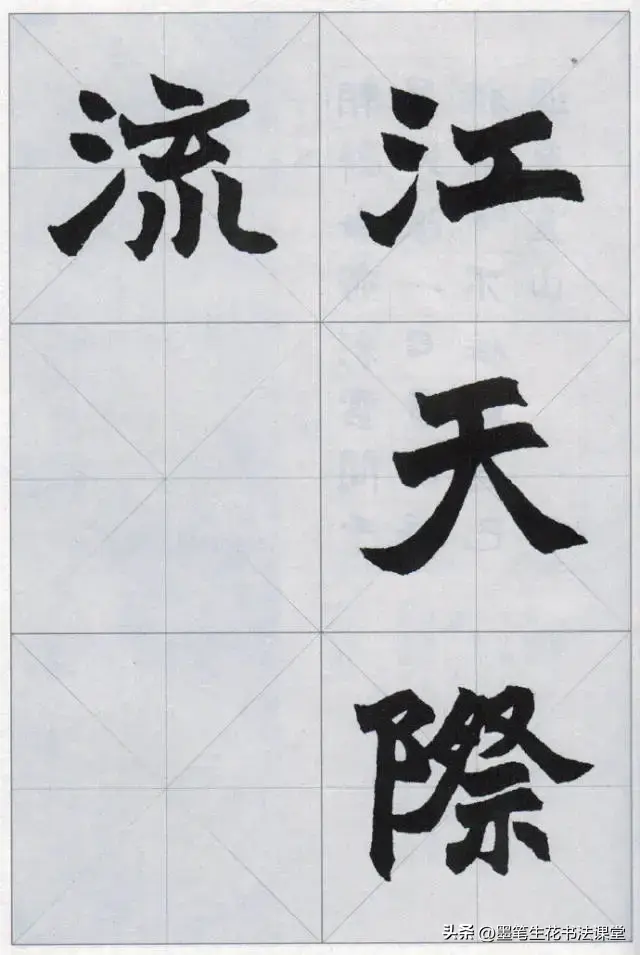 江天際
流
头条 @墨笔生花书法课堂